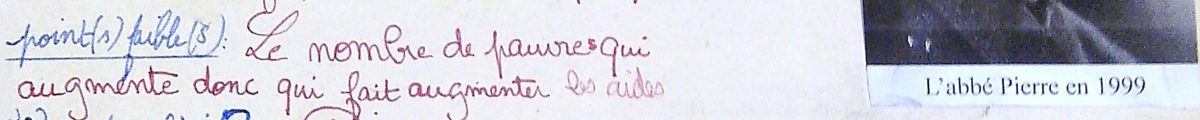 point(s) faible(s): Le nombre de pauvres qui
augmente donc qui fait augmenter les aides
L'abbé Pierre en 1999